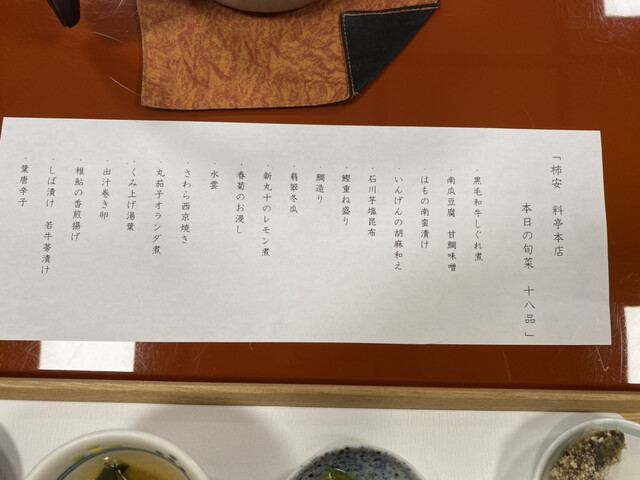 「柿安　料亭本店
本日の旬菜　十八品」
・黒毛和牛しぐれ煮
・南瓜豆腐　甘鯛味噌
・はもの南蛮漬け
・いんげんの胡麻和え
・石川芋塩昆布
・鰹重ね盛り
・鯛造り
・翡翠冬瓜
・新丸十のレモン煮
・春菊のお浸し
・水雲
・さわら西京焼き
・丸茄子オランダ煮
・くみ上げ湯葉
・出汁巻き卵
・稚鮎の香煎揚げ
・しば漬け　若牛蒡漬け
・葉唐辛子